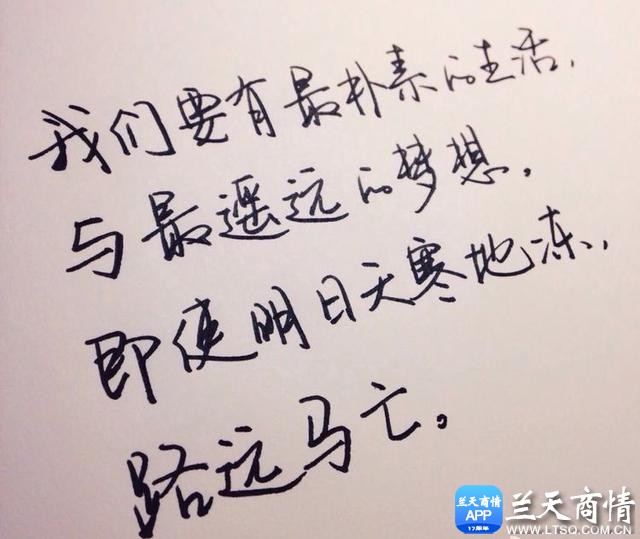 我们要有最朴素的生活，
与最遥远的梦想。
即使明日天寒地冻，
路远马亡。
兰天商情
APP
17周年
兰天商情
WWW.LTSQ.COM.CN